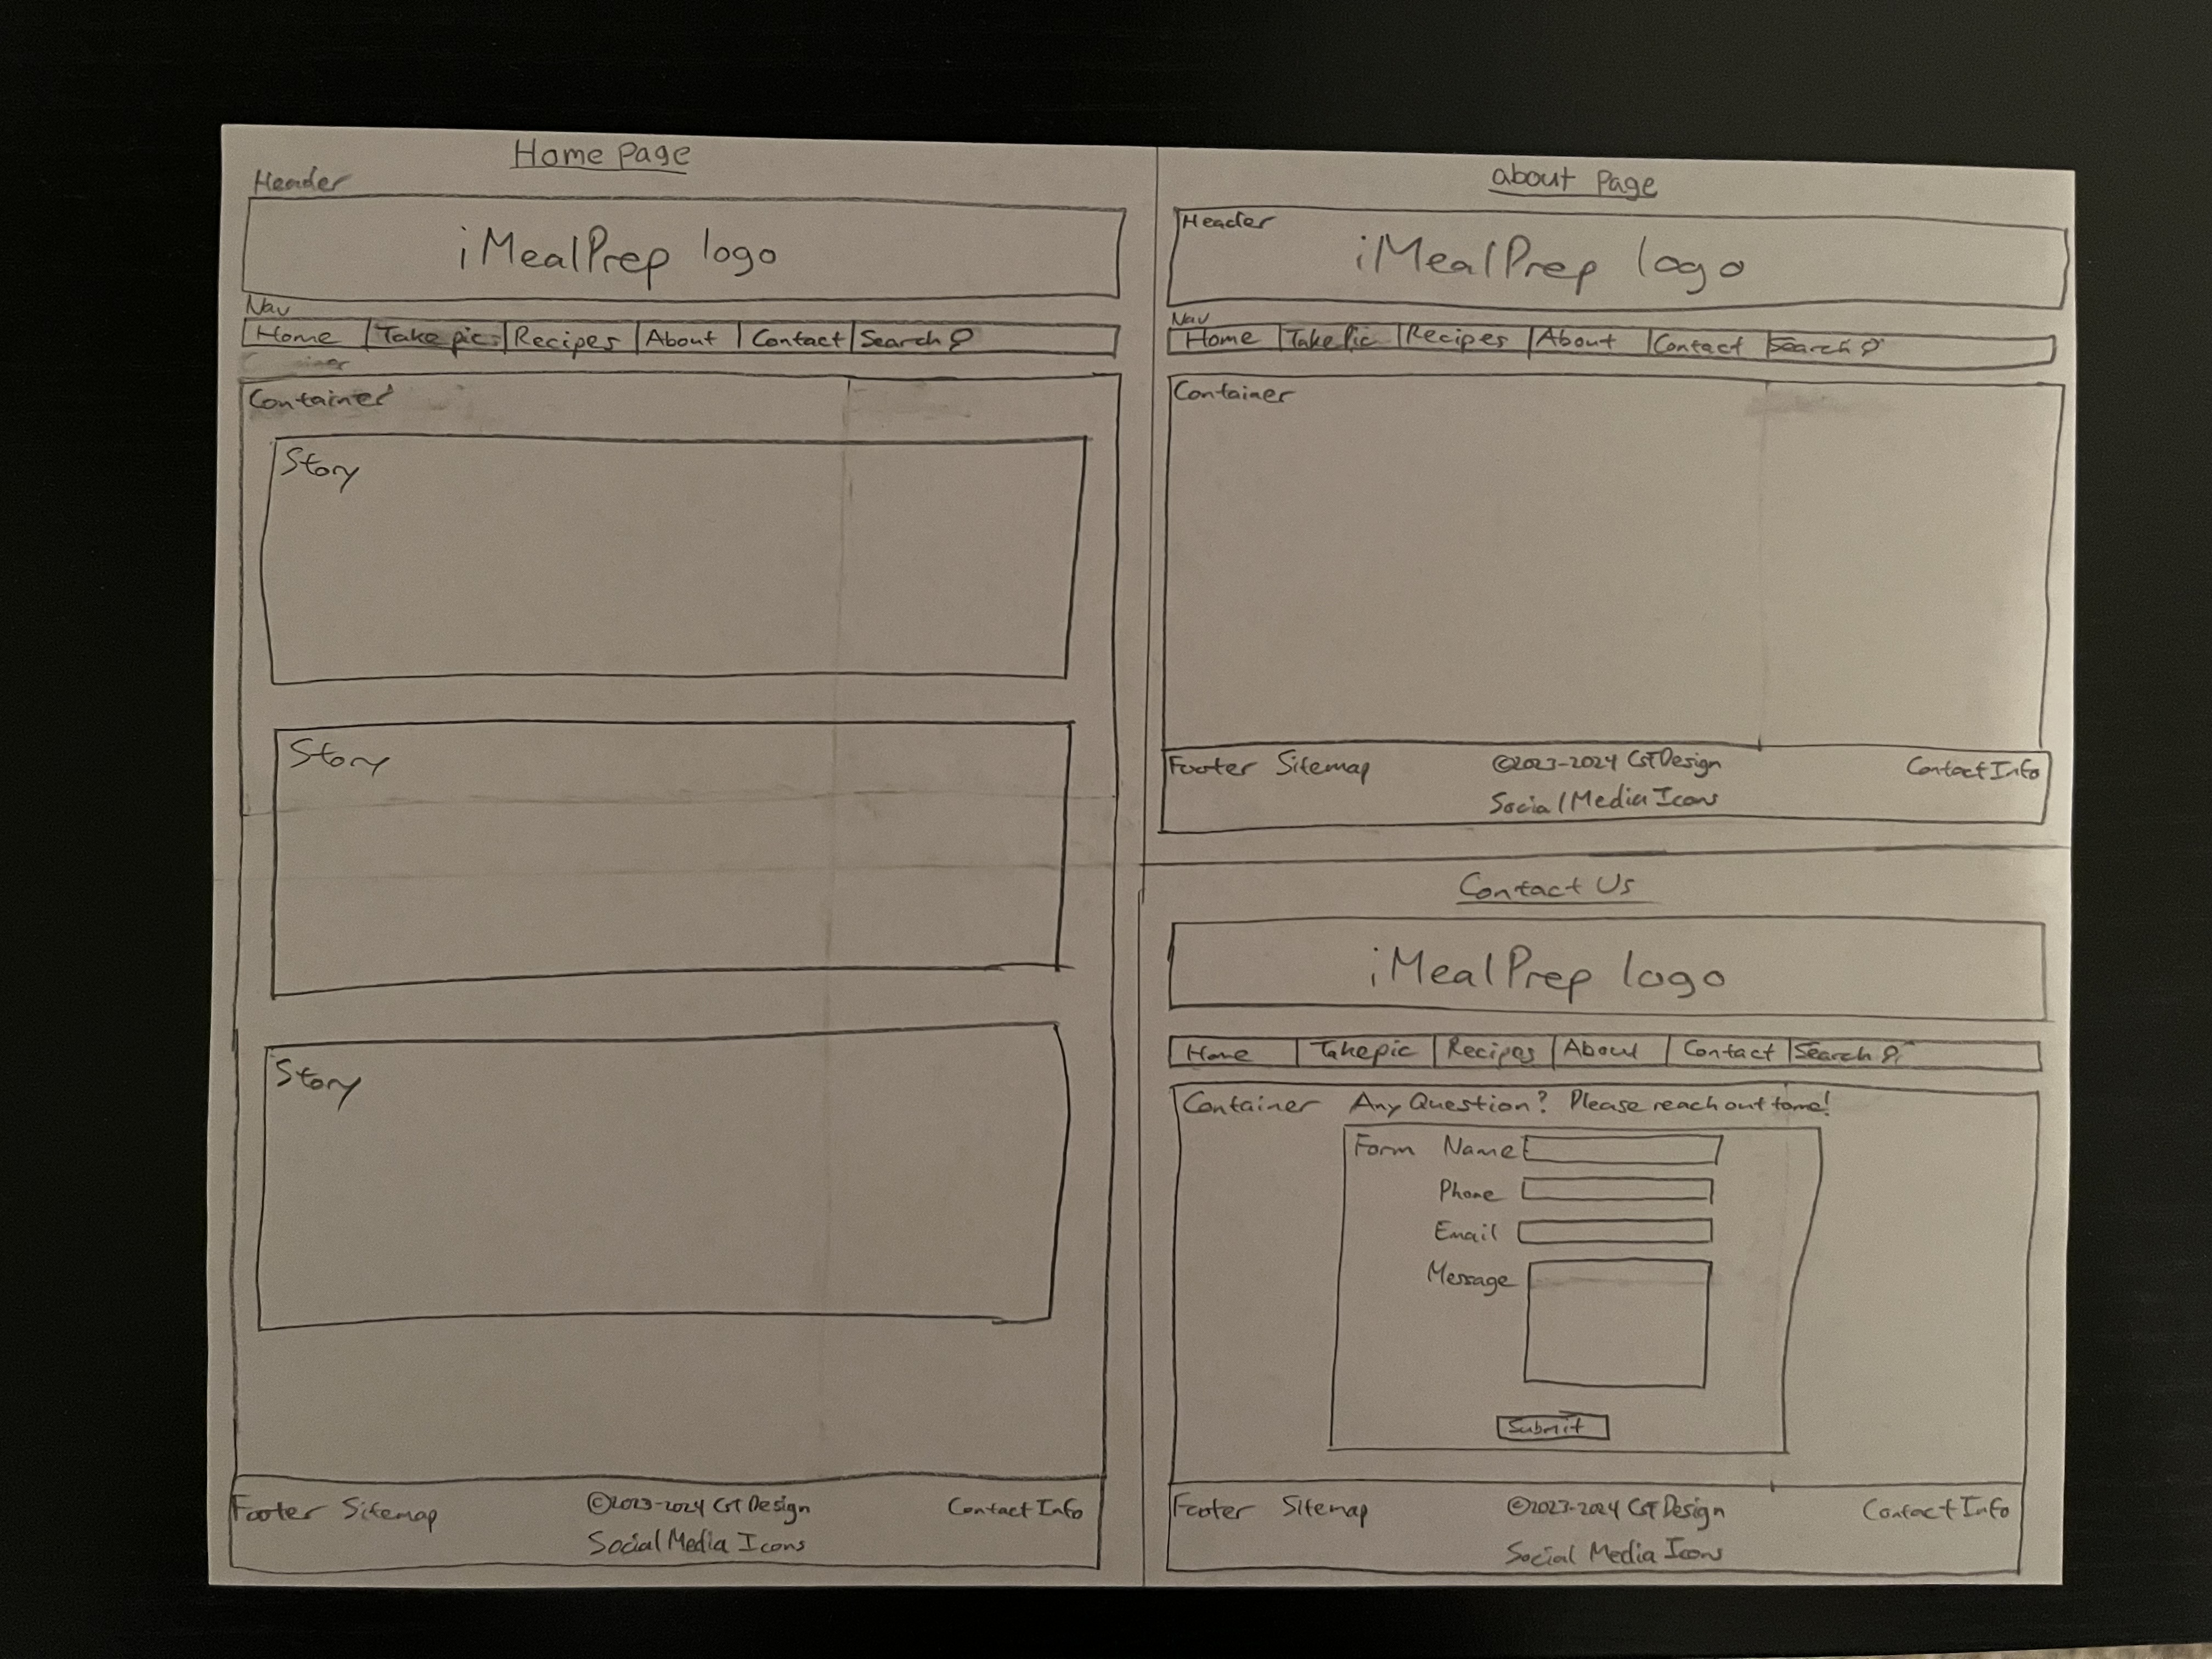 Home Page
Header
iMealPrep logo
Nav
Home Take pic Recipes About Contact Search
Container
Story
Story
Story
Footer Sitemap ©2023-2024 GT Design Contact Info
Social Media Icons
About Page
Header
iMealPrep logo
Nav
Home Take Pic Recipes About Contact Search
Container
Footer Sitemap ©2023-2024 GT Design Contact Info
Social Media Icons
Contact Us
iMealPrep logo
Home Take pic Recipes About Contact Search
Container Any Question? Please reach out to me!
Form Name
Phone
Email
Message
Submit
Footer Sitemap ©2023-2024 GT Design Contact Info
Social Media Icons